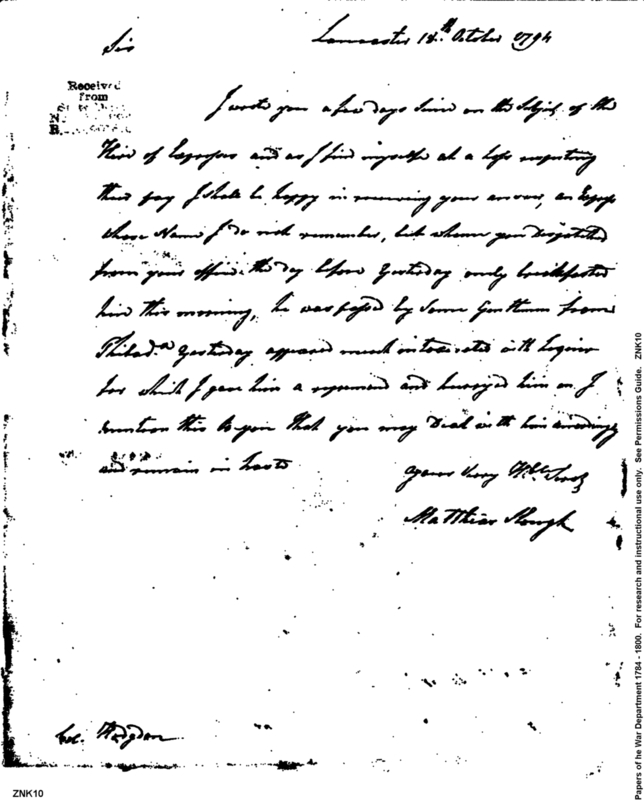 Lancaster 18th October 1794
Sir
Received
from
I wrote you a few days since on the Subject of the
Hire of Expresses and as I find myself at a loss respecting
their pay I shall be happy in receiving your answer, an Express
whose Name I do not remember, but whom you Dispatched
from your office the day before Yesterday only breakfasted
here this morning, he was passed by Some Gentlemen from
Philada Yesterday appeared much intoxicated with liquor
for which I gave him a reprimand and hurryed him on I
mention this to you that you may Deal with him accordingly
and remain in haste
Yours very Hble Servt
Matthias Slough
Col. Hodgdon
ZNK10
Papers of he War Department 1784 - 1800. For research and instructional use only. See Permissions Guide. ZNK10